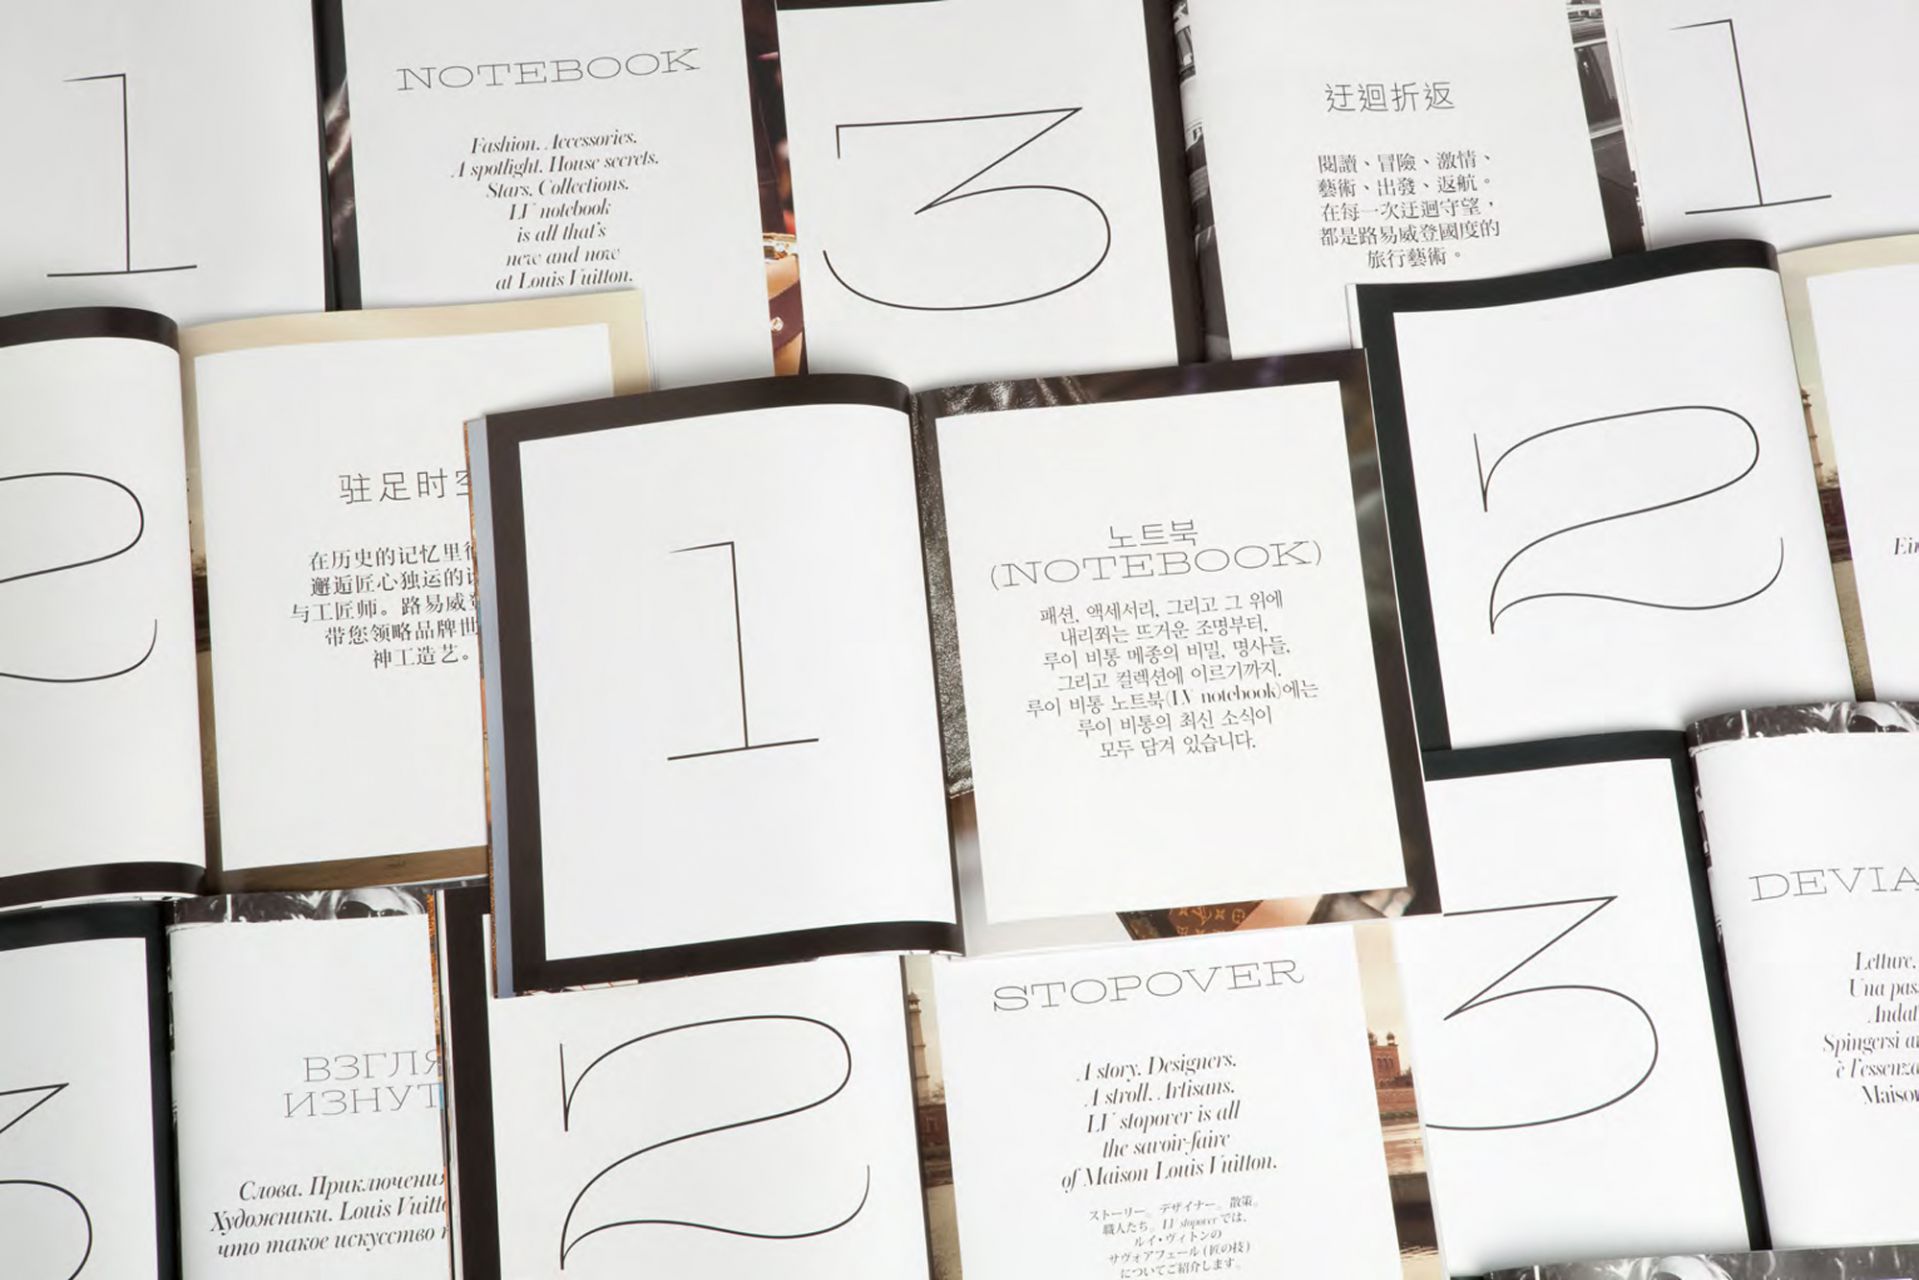 1
NOTEBOOK
Fashion. Accessories.
A spotlight. House secrets.
Stars. Collections.
LV notebook
is all that's
new and now
at Louis Vuitton.
3
迂迴折返
閱讀、冒險、激情、
藝術、出發、返航。
在每一次迂迴守望，
都是路易威登國度的
旅行藝術。
1
2
驻足时空
在历史的记忆里
邂逅匠心独运的
与工匠师。路易威登
带您领略品牌世
神工造艺。
1
노트북
(NOTEBOOK)
패션, 액세서리, 그리고 그 위에
내리쬐는 뜨거운 조명부터,
루이 비통 메종의 비밀, 명사들,
그리고 컬렉션에 이르기까지.
루이 비통 노트북(LV notebook)에는
루이 비통의 최신 소식이
모두 담겨 있습니다.
2
Ein
3
ВЗГЛЯ
ИЗНУТ
Слова. Приключения
Художники. Louis Vuitt
что такое искусство
2
STOPOVER
A story. Designers.
A stroll. Artisans.
LV stopover is all
the savoir-faire
of Maison Louis Vuitton.
ストーリー。デザイナー。散策。
職人たち。LV stopoverでは、
ルイ・ヴィトンの
サヴォアフェール(匠の技)
についてご紹介します。
3
DEVIA
Letture.
Una pas
Andat
Spingersi
è l'essenza
Maison